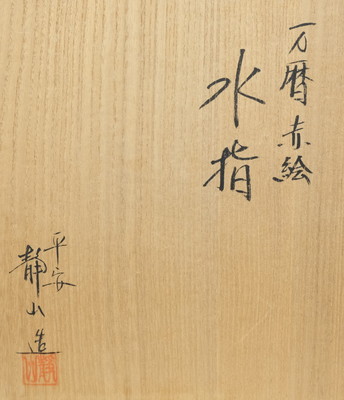 万暦赤絵
水指
平安
静山造